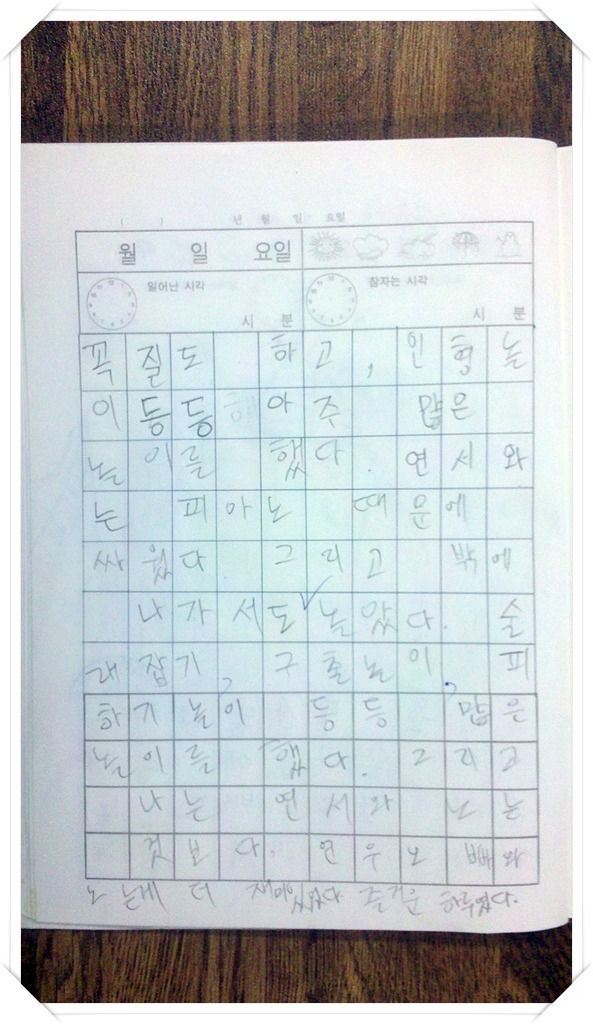 ( ) 년 월 일 요일
월 일 요일
일어난 시각 시 분
잠자는 시각 시 분
꼭질도 하고, 인형놀
이등등 아주 많은
놀이를 했다. 연서와
는 피아노 때문에
싸웠다. 그리고 밖에
나가서도 놀았다. 술
래잡기, 구출놀이, 피
하기놀이 등등, 많은
놀이를 했다. 그리고
나는 연서와 노는
것보다. 연우오빠와
노는게 더 재미있었다. 즐거운 하루였다.